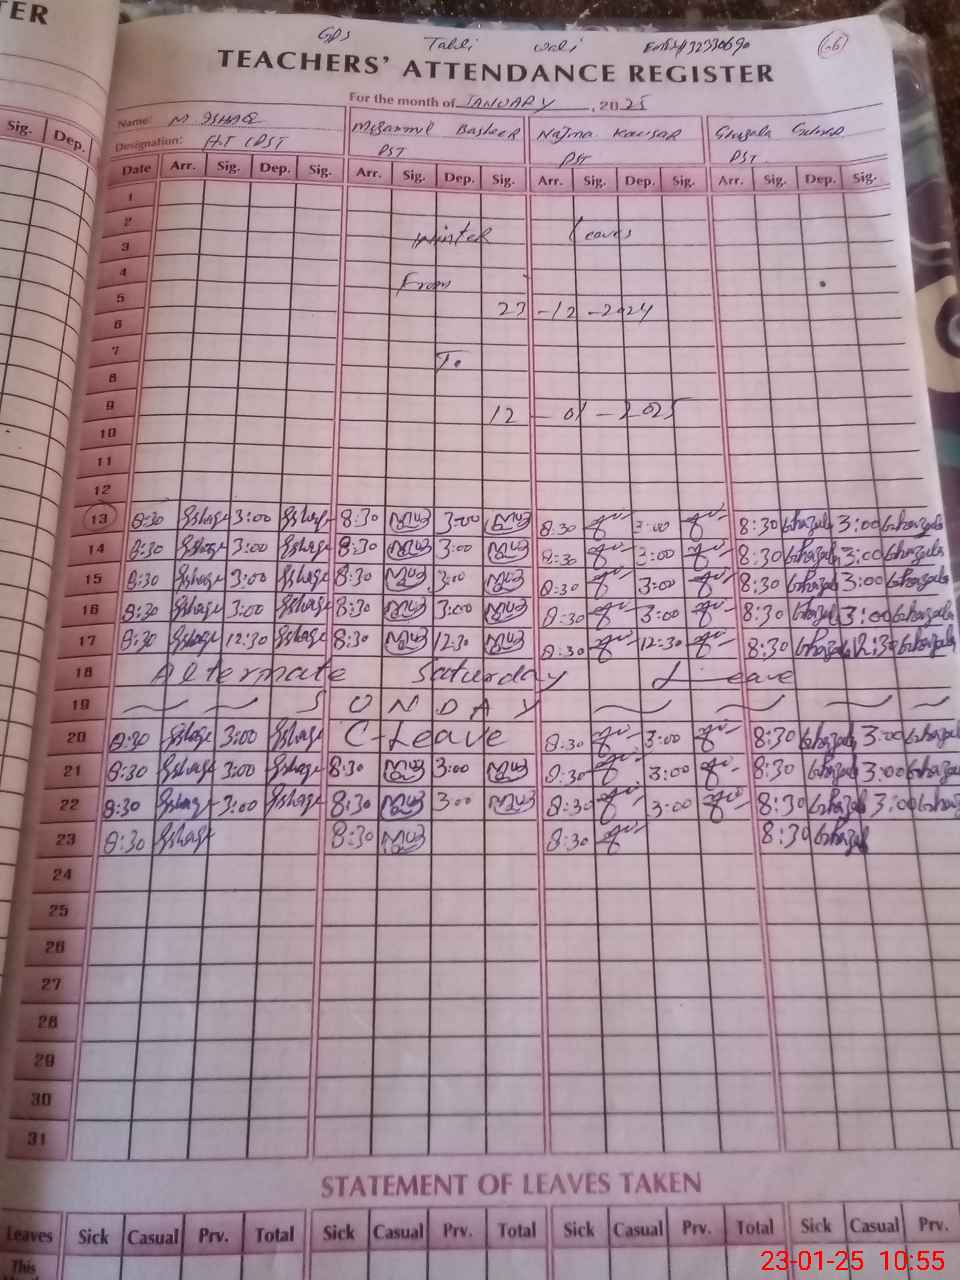 TER
GPS Tahli wali Emis#32330690 66
TEACHERS' ATTENDANCE REGISTER
For the month of JANUARY, 2025
Name: M ISHAGE Basheer Najma Kausar
Designation: PST PST PST
Sig. Dep.
Date Arr. Sig. Dep. Sig. Arr. Sig. Dep. Sig. Arr. Sig. Dep. Sig. Arr. Sig. Dep. Sig.
1
2
winter leaves
3
4
From
5
27-12-2024
6
7
To
8
9
12-01-2025
10
11
12
13 8:30 Ishage 3:00 Ishage 8:30 3:00 8:30 3:00 8:30 Ghazala 3:00 Ghazala
14 8:30 Ishage 3:00 Ishage 8:30 3:00 8:30 3:00 8:30 Ghazala 3:00 Ghazala
15 8:30 Ishage 3:00 Ishage 8:30 3:00 8:30 3:00 8:30 Ghazala 3:00 Ghazala
16 8:30 Ishage 3:00 Ishage 8:30 3:00 8:30 3:00 8:30 Ghazala 3:00 Ghazala
17 8:30 Ishage 12:30 Ishage 8:30 12:30 8:30 12:30 8:30 Ghazala 12:30 Ghazala
18 Alternate Saturday Leave
19 SUNDAY
20 8:30 Ishage 3:00 Ishage C-Leave 8:30 3:00 8:30 Ghazala 3:00 Ghazala
21 8:30 Ishage 3:00 Ishage 8:30 3:00 8:30 3:00 8:30 Ghazala 3:00 Ghazala
22 8:30 Ishage 3:00 Ishage 8:30 3:00 8:30 3:00 8:30 Ghazala 3:00 Ghazala
23 8:30 Ishage 8:30 8:30 8:30 Ghazala
24
25
26
27
28
29
30
31
STATEMENT OF LEAVES TAKEN
Leaves Sick Casual Prv. Total Sick Casual Prv. Total Sick Casual Prv. Total Sick Casual Prv.
This
23-01-25 10:55